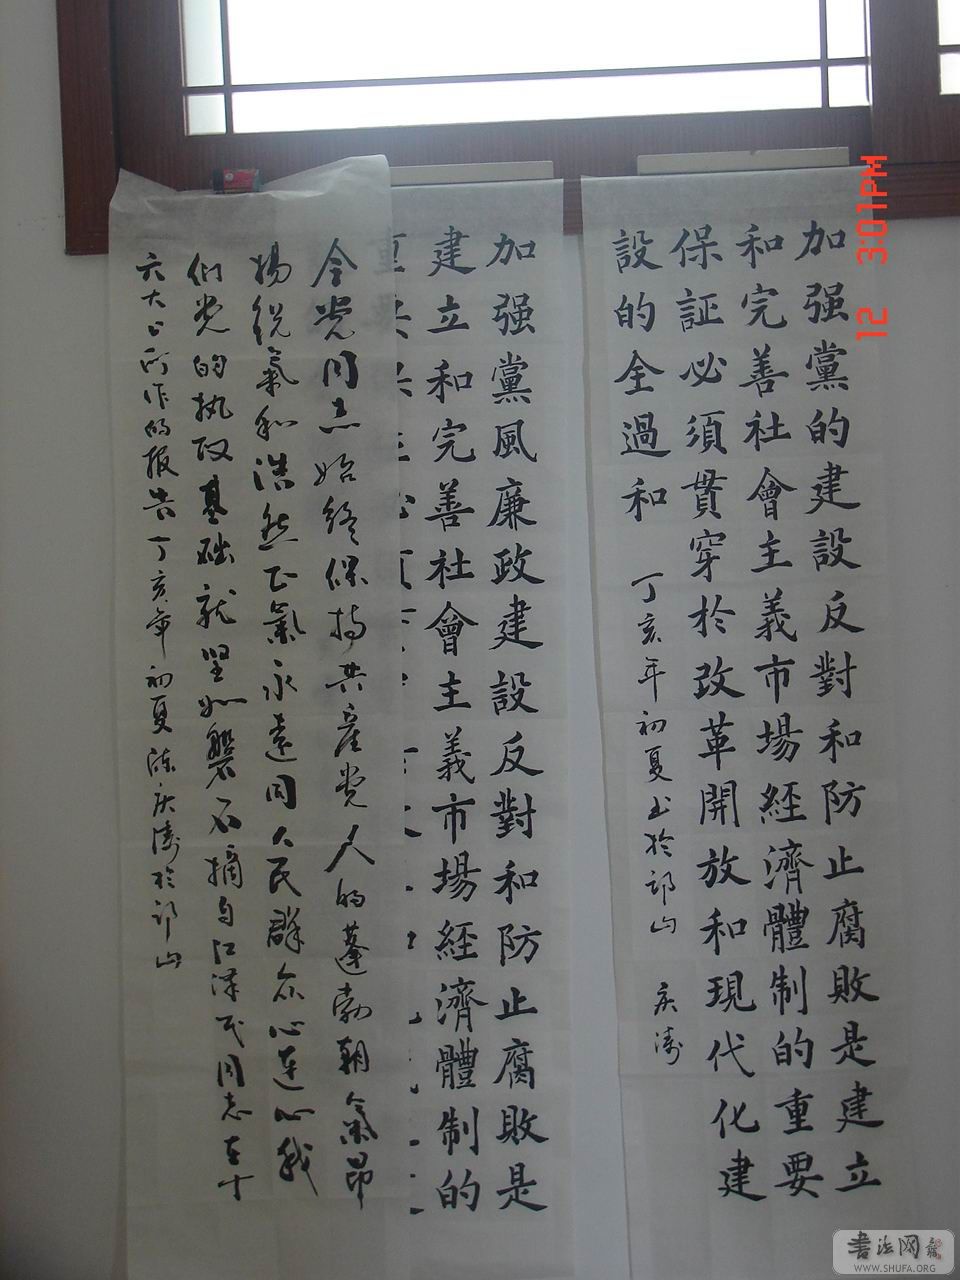 加强黨的建設反對和防止腐敗是建立
和完善社會主義市場經濟體制的重要
保証必須貫穿於改革開放和現代化建
設的全過和 丁亥年初夏书於邙山 庆涛
加强黨風廉政建設反對和防止腐敗是
建立和完善社會主義市場經濟體制的
全党同志始终保持共産党人的蓬勃朝氣昂
扬锐氣和浩然正氣永遠同人民群众心連心我
们党的执政基础就坚如磐石摘自江泽民同志在十
六大上所作的报告丁亥年初夏陈庆涛於邙山
12 3:01PM
書法网
WWW.SHUFA.ORG